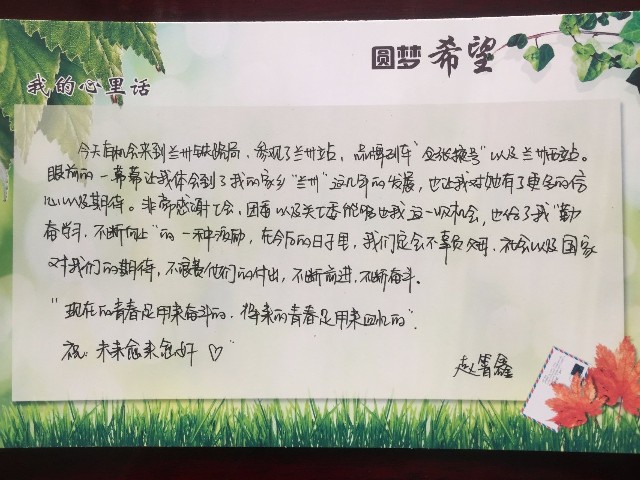 圆梦希望
我的心里话
今天有机会来到兰州铁路局,参观了兰州站、品牌列车“金张掖号”以及兰州西站。
眼前的一幕幕让我体会到了我的家乡“兰州”这几年的发展,也让我对她有了更多的信
心以及期待。非常感谢工会,团委以及关工委能够给我这一次机会,也给了我“勤
奋学习,不断向上”的一种激励,在今后的日子里,我们定会不辜负父母、社会以及国家
对我们的期待,不浪费他们的付出,不断前进,不断奋斗。
“现在的青春是用来奋斗的,将来的青春是用来回忆的”。
祝:未来愈来愈好♡”
赵箐鑫